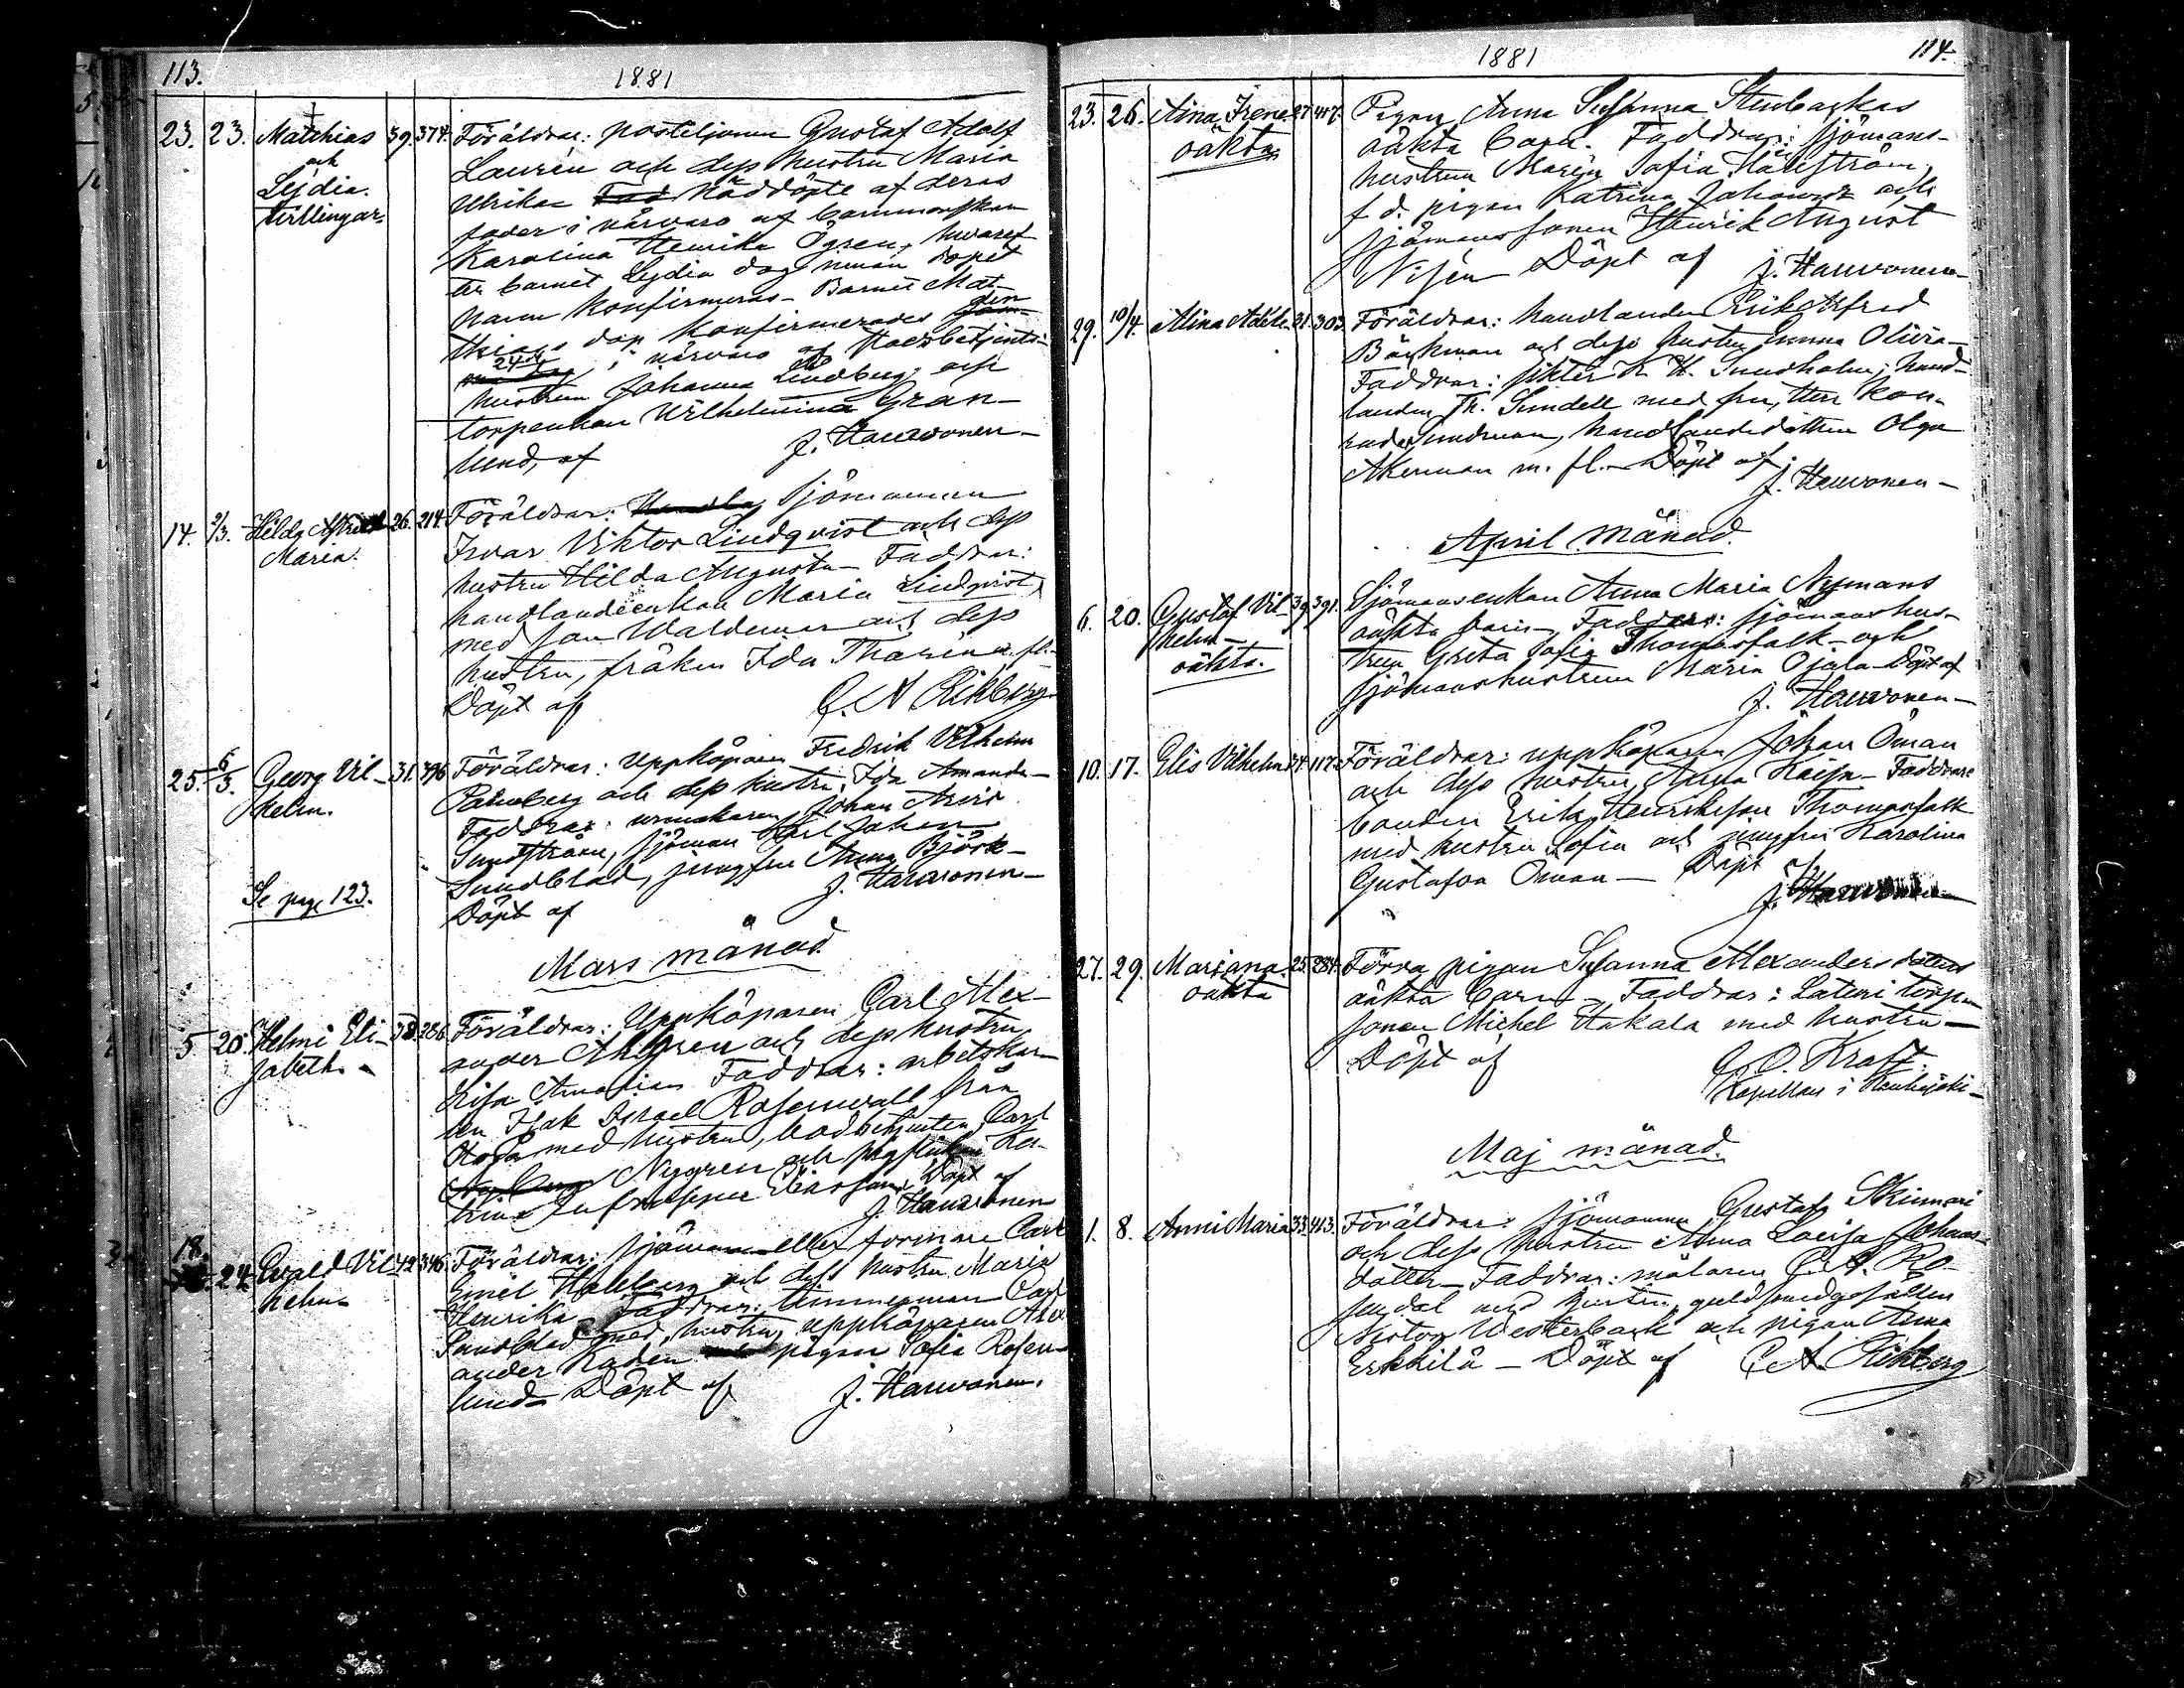 113.
1881
23. 23. Matthias 39. 374. Föräldrar: postiljonen Gustaf Adolf
och
Lydia.
tvillingar.
Laurén och dess hustru Maria
Ulrika Nöddöpte af deras
fader i närvaro af barnmorskan
Karolina Henrika Ögren, hvaref-
ter barnet Lydia dog innan dopet
hann konfirmeras. Barnet Mat-
thias dop konfirmerades den
24 i närvaro af
hustrun Johanna Lindberg och
torpenkan Vilhelmina Gran-
lund, af J. Hauvonen
14. 2/3. Hilda 26. 214. Föräldrar: Sjömannen
Maria.
Ivar Viktor Lindqvist och dess
hustru Hilda Augusta Faddrar:
handlandeenkan Maria Lindqvist
med son Waldemar och dess
hustru, fröken Ida m. fl.
Döpt af
25. 6/3. Georg Vil- 31. 396 Föräldrar: Uppköparen Fredrik Vilhelm
helm.
Palmberg och dess hustru Ida Amanda
Faddrar: urmakaren Johan Arvid
Sundström, sjöman Karl Johan
Sundblad, jungfru Anna Björk-
Döpt af J. Hauvonen
Se pag. 123.
Mars månad.
5 20. Helmi Eli- 286 Föräldrar: Uppköparen Carl Alex-
sabeth
ander Ahlgren och dess hustru
Lisa Amalia Faddrar: arbetskar-
len Isak Israel Rosenwall från
med hustru, bodbetjenten Carl
Nygren och
Döpt af
J. Hauvonen
18. 24. Evald Vil- 42 346 Föräldrar: sjöman eller formare Carl
helm
Emil och dess hustru Maria
Henrika Faddrar: timmerman Carl
Sundblad med hustru, uppköparen Alex-
ander pigan Sofia Rosen-
lund Döpt af J. Hauvonen.
1881
114.
23. 26. Aina Irene 27 417. Pigan Anna Susanna Stenbackas
oäkta
oäkta barn. Faddrar: sjömans-
hustrun Maria Sofia
f. d. pigan Katrina och
sjömanssonen Henrik August
Nisén Döpt af J. Hauvonen
29. 10/4. Alina Adéle 21. 303. Föräldrar: handlanden Erik Alfred
Bäckman och dess hustru Emma Olivia
Faddrar: K. H. Sundholm, hand-
landen Th. Sundell med fru, Herr Kon-
rad handlandedottren Olga
Åkerman m. fl. Döpt af
J. Hauvonen
April månad.
6. 20. Gustaf Vil- 39. 391. Sjömansenkan Anna Maria Nymans
helm
oäkta.
oäkta barn, Faddrar: sjömanshus-
trun Greta Sofia Thomasfalk och
sjömanshustrun Maria Ojala Döpt af
J. Hauvonen
10. 17. Elis Vilhelm 117. Föräldrar: uppköparen Johan Öman
och dess hustru Anna Kaisa Faddrar:
bonden Erik Henriksson Thomasfalk
med hustru Sofia och jungfru Karolina
Gustafva Öman Döpt af
J. Hauvonen
27. 29. Mariana 25. 284. Förra pigan Susanna Alexandersdotters
oäkta
oäkta barn, Faddrar: torpar
sonen Michel Hakala med hustru
Döpt af Kraft.
Kapellan i
Maj månad.
1. 8. Anni Maria 33. 413. Föräldrar: sjömannen Gustaf Skinnari
och dess hustru Anna Lovisa Johans-
dotter Faddrar: målaren C. A. Ro-
sendal med hustru, guldsmedgesällen
Nestor Westerback och pigan Anna
Erkkilä Döpt af